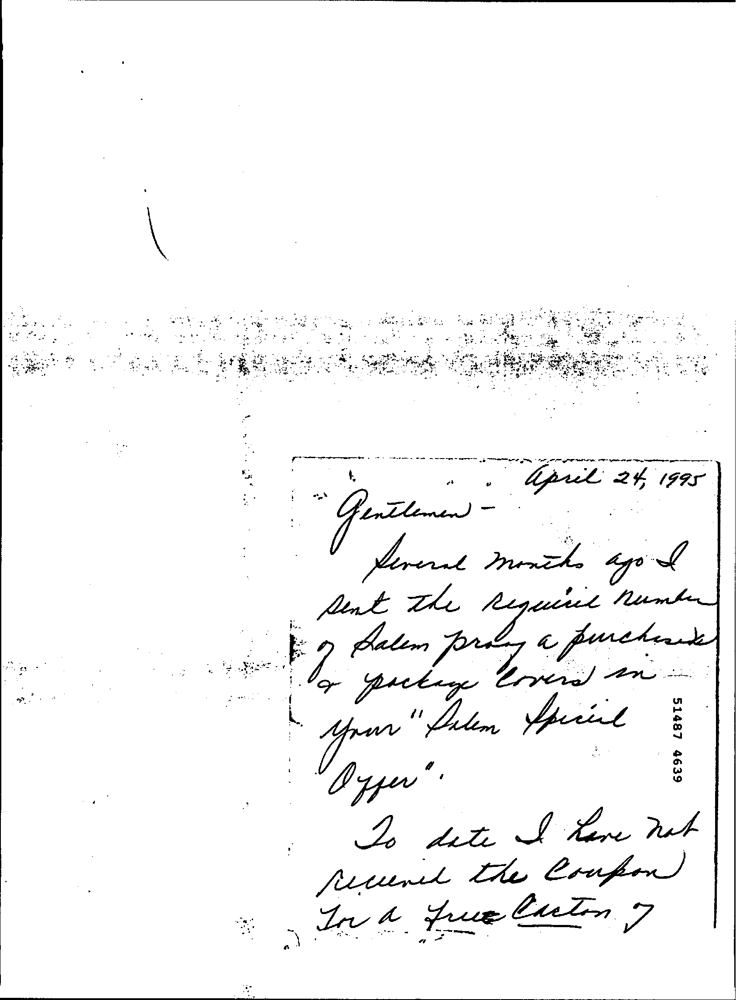 April 24, 1995
Gentlemen -
Several months ago I
sent the required number
of Salem proof a purchases
& package covers in
your "Salem Special
Offer".
To date I have not
received the coupon
for a free Carton of
51487 4639